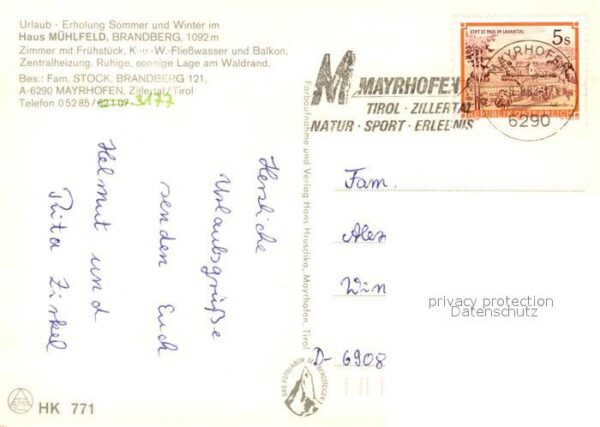 Urlaub - Erholung Sommer und Winter im
Haus MÜHLFELD, BRANDBERG, 1092 m
Zimmer mit Frühstück. K-u-W-Fließwasser und Balkon.
Zentralheizung. Ruhige, sonnige Lage am Waldrand.
Bes.: Fam. STOCK, BRANDBERG 121,
A-6290 MAYRHOFEN, Zillertal/Tirol
Telefon 05285/62107 3177
Herzliche
Urlaubsgrüße
senden Euch
Helmut und
Rita Zirkel
HK 771
Farbaufnahme und Verlag Hans Hruschka, Mayrhofen, Tirol
M MAYRHOFEN
TIROL · ZILLERTAL
NATUR · SPORT · ERLEBNIS
STIFT ST. PAUL IM LAVANTTAL
5s
REPUBLIK ÖSTERREICH
MAYRHOFEN
6290
Fam.
Alex
Win
D-6908
privacy protection
Datenschutz